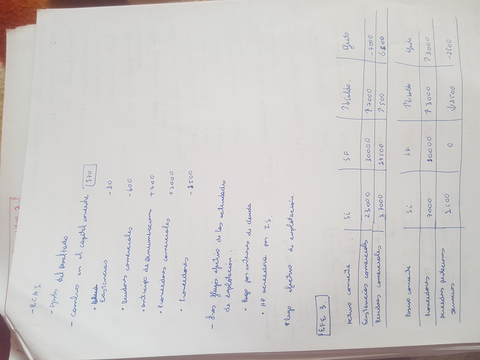 - Ajustes del Resultado
- Cambios en el capital corriente 570
• Existencias -30
• Deudores comerciales -600
• Anticipo de remuneraciones +400
• Proveedores comerciales +3000
• Proveedores -2500
- Otros flujos efectivo de las actividades de explotación.
• Pago por intereses de deuda
• HP acreedora por IS.
Flujo efectivo de explotación
EPE 3
Activo corriente Si SF ↑↓ Saldo Efecto
Existencias comerciales 23000 30000 ↑7000 -7000
Deudores comerciales 500
Pasivo corriente Si SF ↑↓ Saldo Efecto
Proveedores 7000 10000 ↑3000 ↑3000
servicios 2500 0 ↓2500 -2500